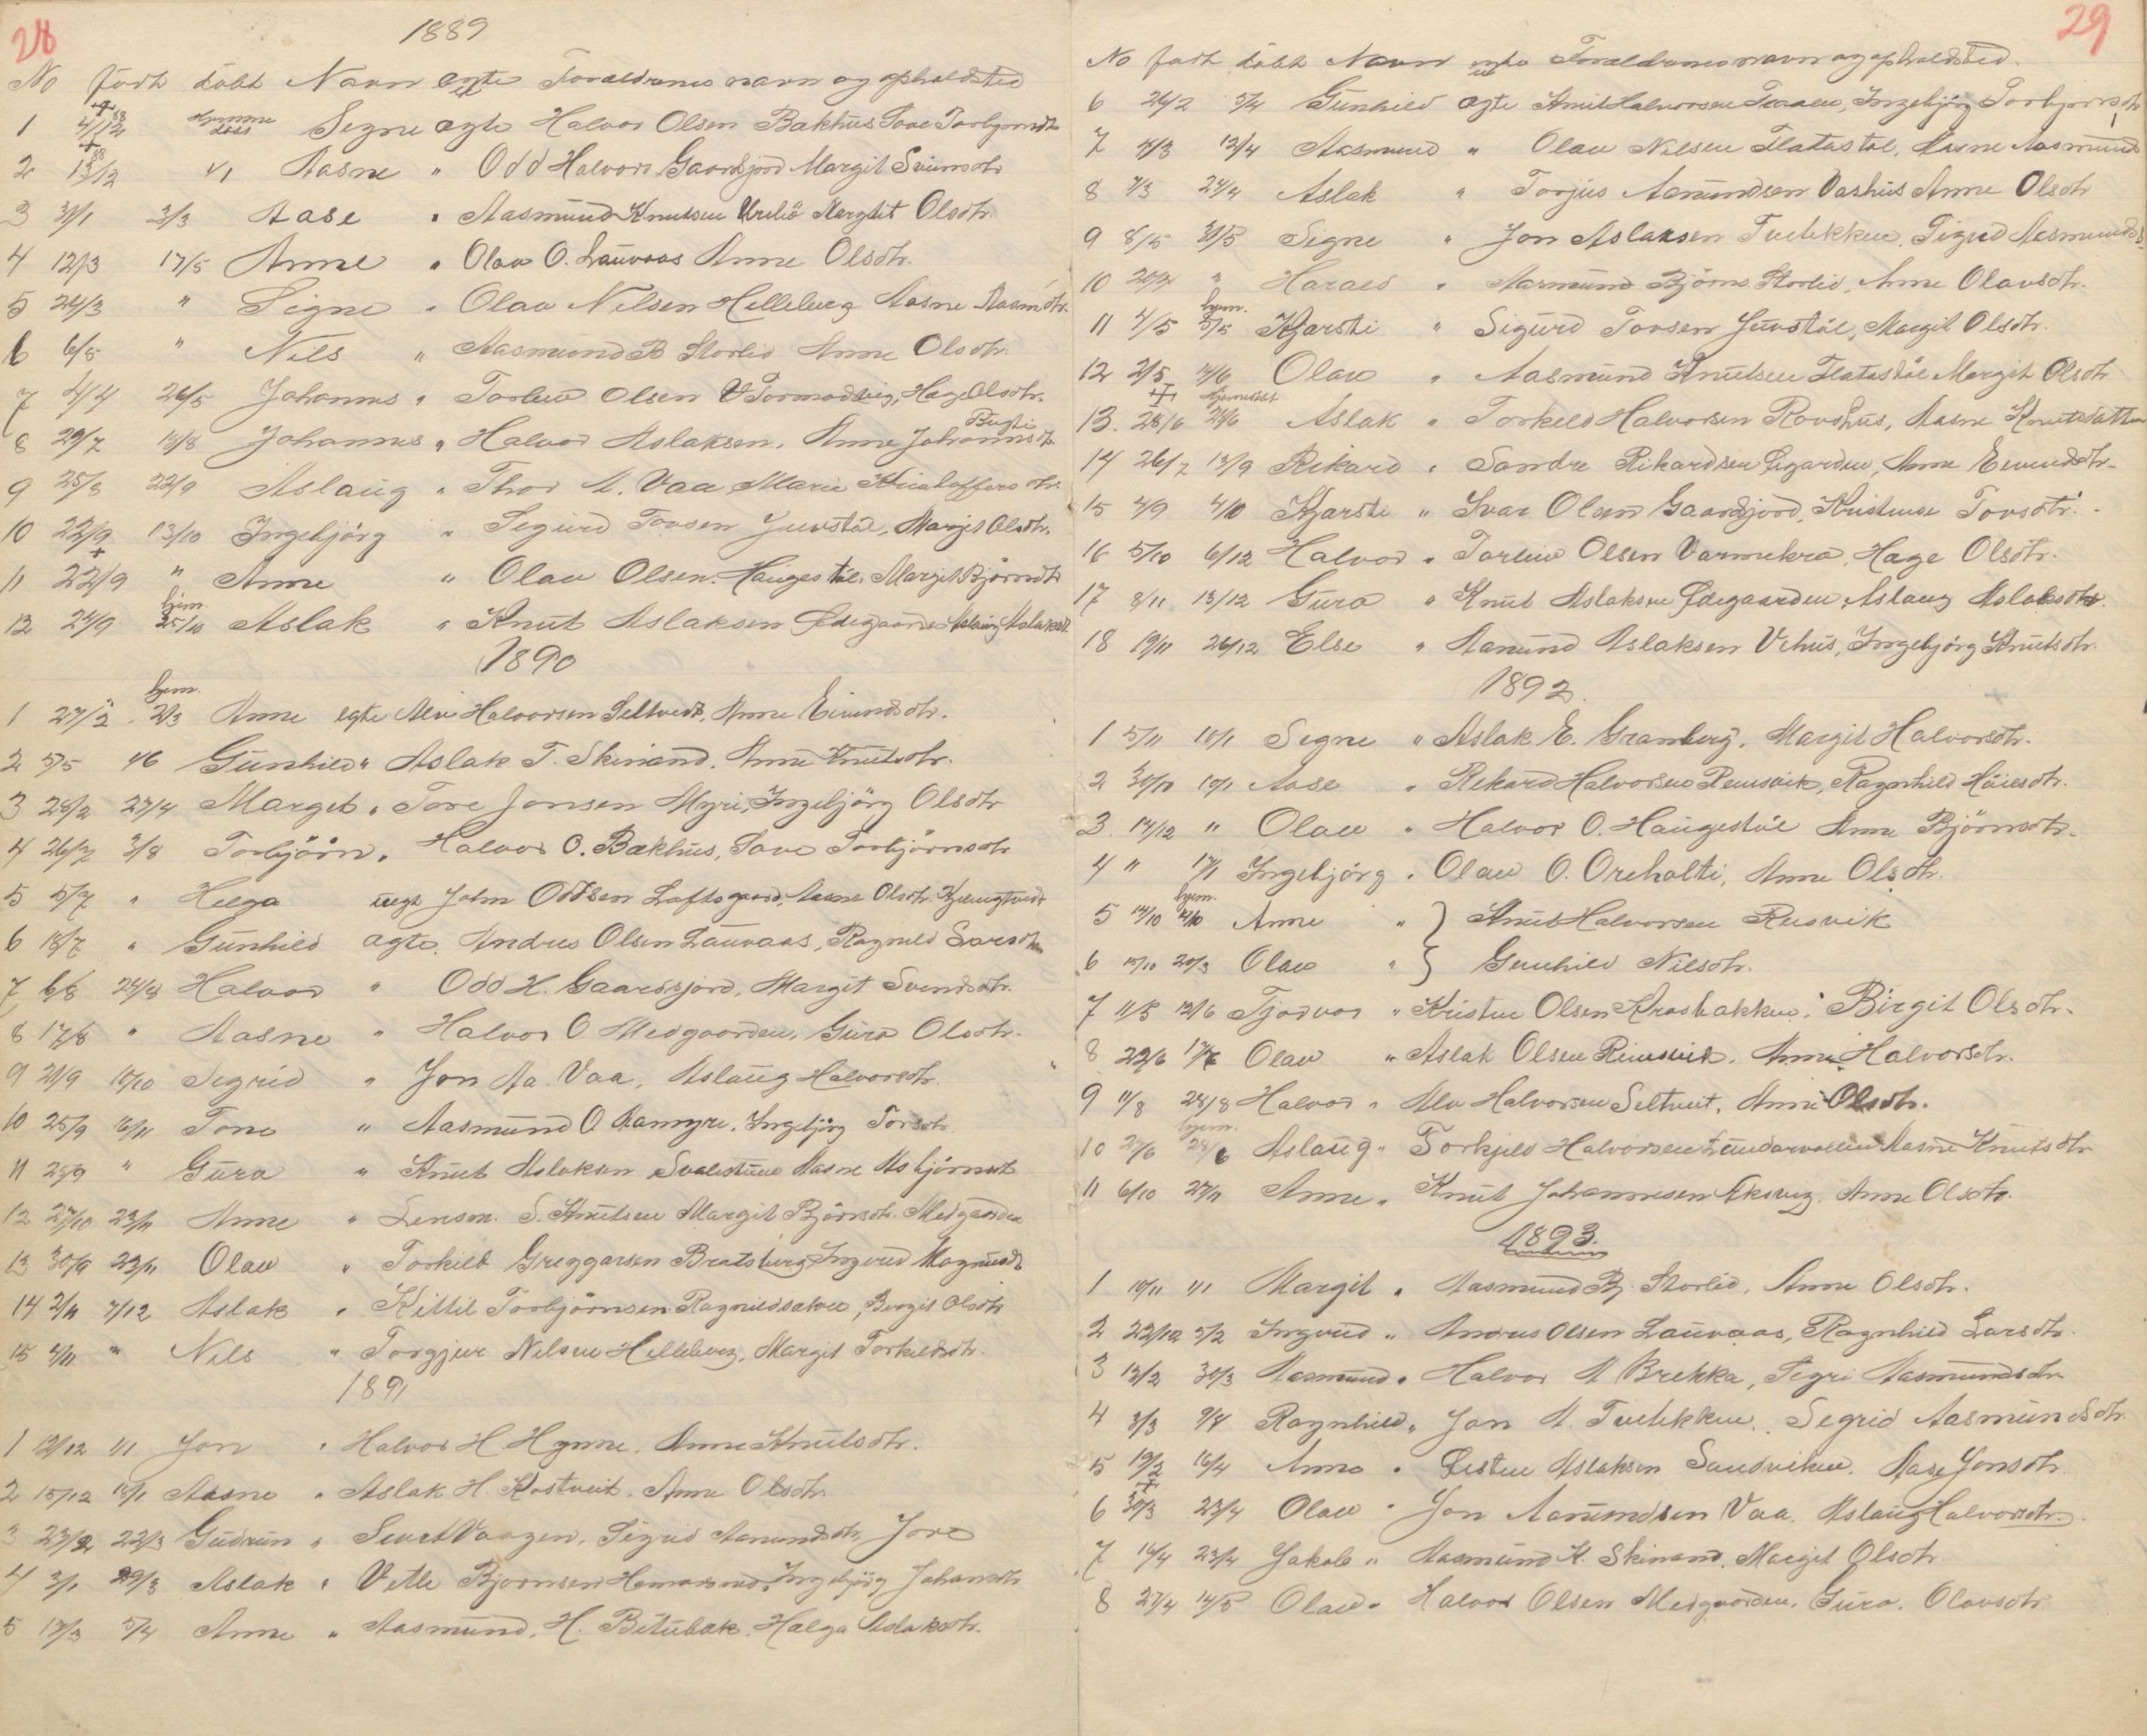 28
1889
No födt döbt Navn ægte Forældrenes navn og opholdsted
1 4/12 88 Hjemme døbt Signe ægte Halvor Olsen Bakhus Tove Torbjørnsdt
2 13/12 88 " Aasne " Odd Halvors Gaardsjord Margit Svensdtr
3 31/1 3/3 Aase " Aasmund Knutsen Margit Olsdtr.
4 12/3 17/5 Anne " Olav O. Lauvaas Anne Olsdtr.
5 24/3 " Signe " Olav Nilsen Helleberg Aasne Aasmdtr.
6 6/5 " Nils " Aasmund B Storlid Anne Olsdtr.
7 4/4 26/5 Johannes " Torleiv Olsen Hage Olsdtr.
8 29/7 18/8 Johannes " Halvor Aslaksen, Anne Johannsdt
9 25/8 22/9 Aslaug " Thor A. Vaa Marie Kristoffersdtr.
10 22/9 13/10 Ingebjörg " Sigurd Tovsen Juvstöl, Margit Olsdtr.
11 22/9 " Anne " Olav Olsen Haugestöl, Margit Björnsdtr
12 24/9 hjem. 25/10 Aslak " Knut Aslaksen Ødegaarden Aslaug Aslaksdt
1890
1 27/2 hjem. 2/3 Anne egte Alv Halvorsen Seltveit, Anne Eivindsdtr.
2 5/5 1/6 Gunhild " Aslak T. Skinand, Anne Knutsdtr.
3 28/2 27/4 Margit " Tove Jonsen Myri, Ingebjörg Olsdtr
4 26/7 3/8 Torbjörn " Halvor O. Bakhus, Tove Torbjörnsdtr
5 5/7 " Helga uegt John Oddsen Loftsgaard, Aasne Olsdtr.
6 18/7 " Gunhild ægte Andres Olsen Lauvaas, Ragnild Larsdtr
7 6/8 24/8 Halvor " Odd H. Gaardsjord, Margit Svendsdtr.
8 17/8 " Aasne " Halvor O Medgaarden, Guro Olsdtr.
9 21/9 10/10 Sigrid " Jon Aa. Vaa, Aslaug Halvorsdtr.
10 25/9 16/11 Tone " Aasmund O Aamyre, Ingebjörg Torsdtr.
11 25/9 " Guro " Knut Aslaksen Svalestuen Aasne Asbjörnsdt
12 27/10 23/11 Anne " Lensm. S. Knutsen Margit Björnsdtr. Medgaarden
13 30/9 23/11 Olav " Torkild Greggarsen Bratsberg Ingerid Magnusdt
14 2/11 7/12 Aslak " Kittil Torbjörnsen Bergit Olsdtr
15 4/11 " Nils " Torgjer Nilsen Helleberg, Margit Torkildsdtr.
1891
1 12/12 1/1 Jon " Halvor H Hynne, Anne Knutsdtr.
2 15/12 18/1 Aasne " Aslak H. Kostveit, Anne Olsdtr.
3 23/2 22/3 Gudrun " Vaagen, Sigrid Aamundsdtr, Jore
4 3/1 29/3 Aslak " Vetle Bjornsen Ingebjörg Johansdtr
5 17/3 5/4 Anne " Aasmund H. Bitubak, Halga Aslaksdtr.
29
No födt döbt Navn ægte Forældrenes navn og opholdsted.
6 26/2 5/4 Gunhild ægte Knut Halvorsen Ingebjörg Torbjörnsdtr
7 4/3 12/4 Aasmund " Olav Nilsen Flatastöl, Aasne Aasmund
8 7/3 24/4 Aslak " Torjus Aamundsen Vashus Anne Olsdtr
9 8/5 31/5 Signe " Jon Aslaksen Tveitekkin, Sigrid Aasmundsd
10 20/4 " Harald " Aasmund Bjöms Storlid, Anne Olavsdtr.
11 4/5 hjem. 5/5 Kjersti " Sigurd Tovsen Juvstöl, Margit Olsdtr.
12 2/5 14/6 Olav " Aasmund Knutsen Flatastöl Margit Olsdtr
13 28/6 Hjemdöbt 28/6 Aslak " Torkeld Halvorsen Rovshus, Aasne Knutsdatter
14 26/7 13/9 Rikard " Sondre Rikardsen Anne Eivindsdtr.
15 4/9 4/10 Kjersti " Ivar Olsen Gaardsjord, Kristense Tovsdtr.
16 5/10 6/12 Halvor " Torleiv Olsen Varmekra, Hage Olsdtr.
17 8/11 13/12 Guro " Knut Aslaksen Ødegaarden, Aslaug Aslaksdtr.
18 19/11 26/12 Else " Aanund Aslaksen Vehus, Ingebjörg Knutsdtr.
1892.
1 5/11 10/1 Signe " Aslak E. Granberg, Margit Halvorsdtr.
2 30/10 10/1 Aase " Rikard Halvorsen Reinsvik, Ragnhild Höiesdtr.
3. 14/12 " Olav " Halvor O. Haugestöl Anne Björnsdtr.
4 " 17/1 Ingebjörg " Olav O. Oreholti, Anne Olsdtr.
5 14/10 hjem. 14/10 Anne " } Knut Halvorsen Rusvik
6 15/10 20/3 Olav " } Gunhild Nilsdtr.
7 11/5 12/6 Tjodvor " Kristen Olsen Krosbakken, Birgit Olsdtr.
8 22/6 17/7 Olav " Aslak Olsen Reinsvik, Anne Halvorsdtr.
9 11/8 28/8 Halvor " Alv Halvorsen Seltveit, Anne Olsdtr.
10 27/6 hjem. 28/6 Aslaug " Torkjeld Halvorsen Lundarvollen Aasne Knutsdtr
11 6/10 27/11 Anne " Knut Johannesen Anne Olsdtr.
1893.
1 10/11 1/1 Margit " Aasmund Bj. Storlid, Anne Olsdtr.
2 22/12 5/2 Ingerid " Andres Olsen Lauvaas, Ragnhild Larsdtr.
3 12/2 30/3 Aasmund " Halvor A Brekka, Sigri Aasmundsdtr
4 3/3 9/4 Ragnhild " Jon A. Tveitekkin, Sigrid Aasmundsdtr.
5 19/2 16/4 Anne " Østen Aslaksen Sandviken, Aase Jonsdtr.
6 30/3 23/4 Olav " Jon Aamundsen Vaa, Aslaug Halvorsdtr.
7 16/4 23/4 Jakob " Aasmund K. Skinand, Margit Olsdtr.
8 27/4 14/5 Olav " Halvor Olsen Medgaarden, Guro Olavsdtr.